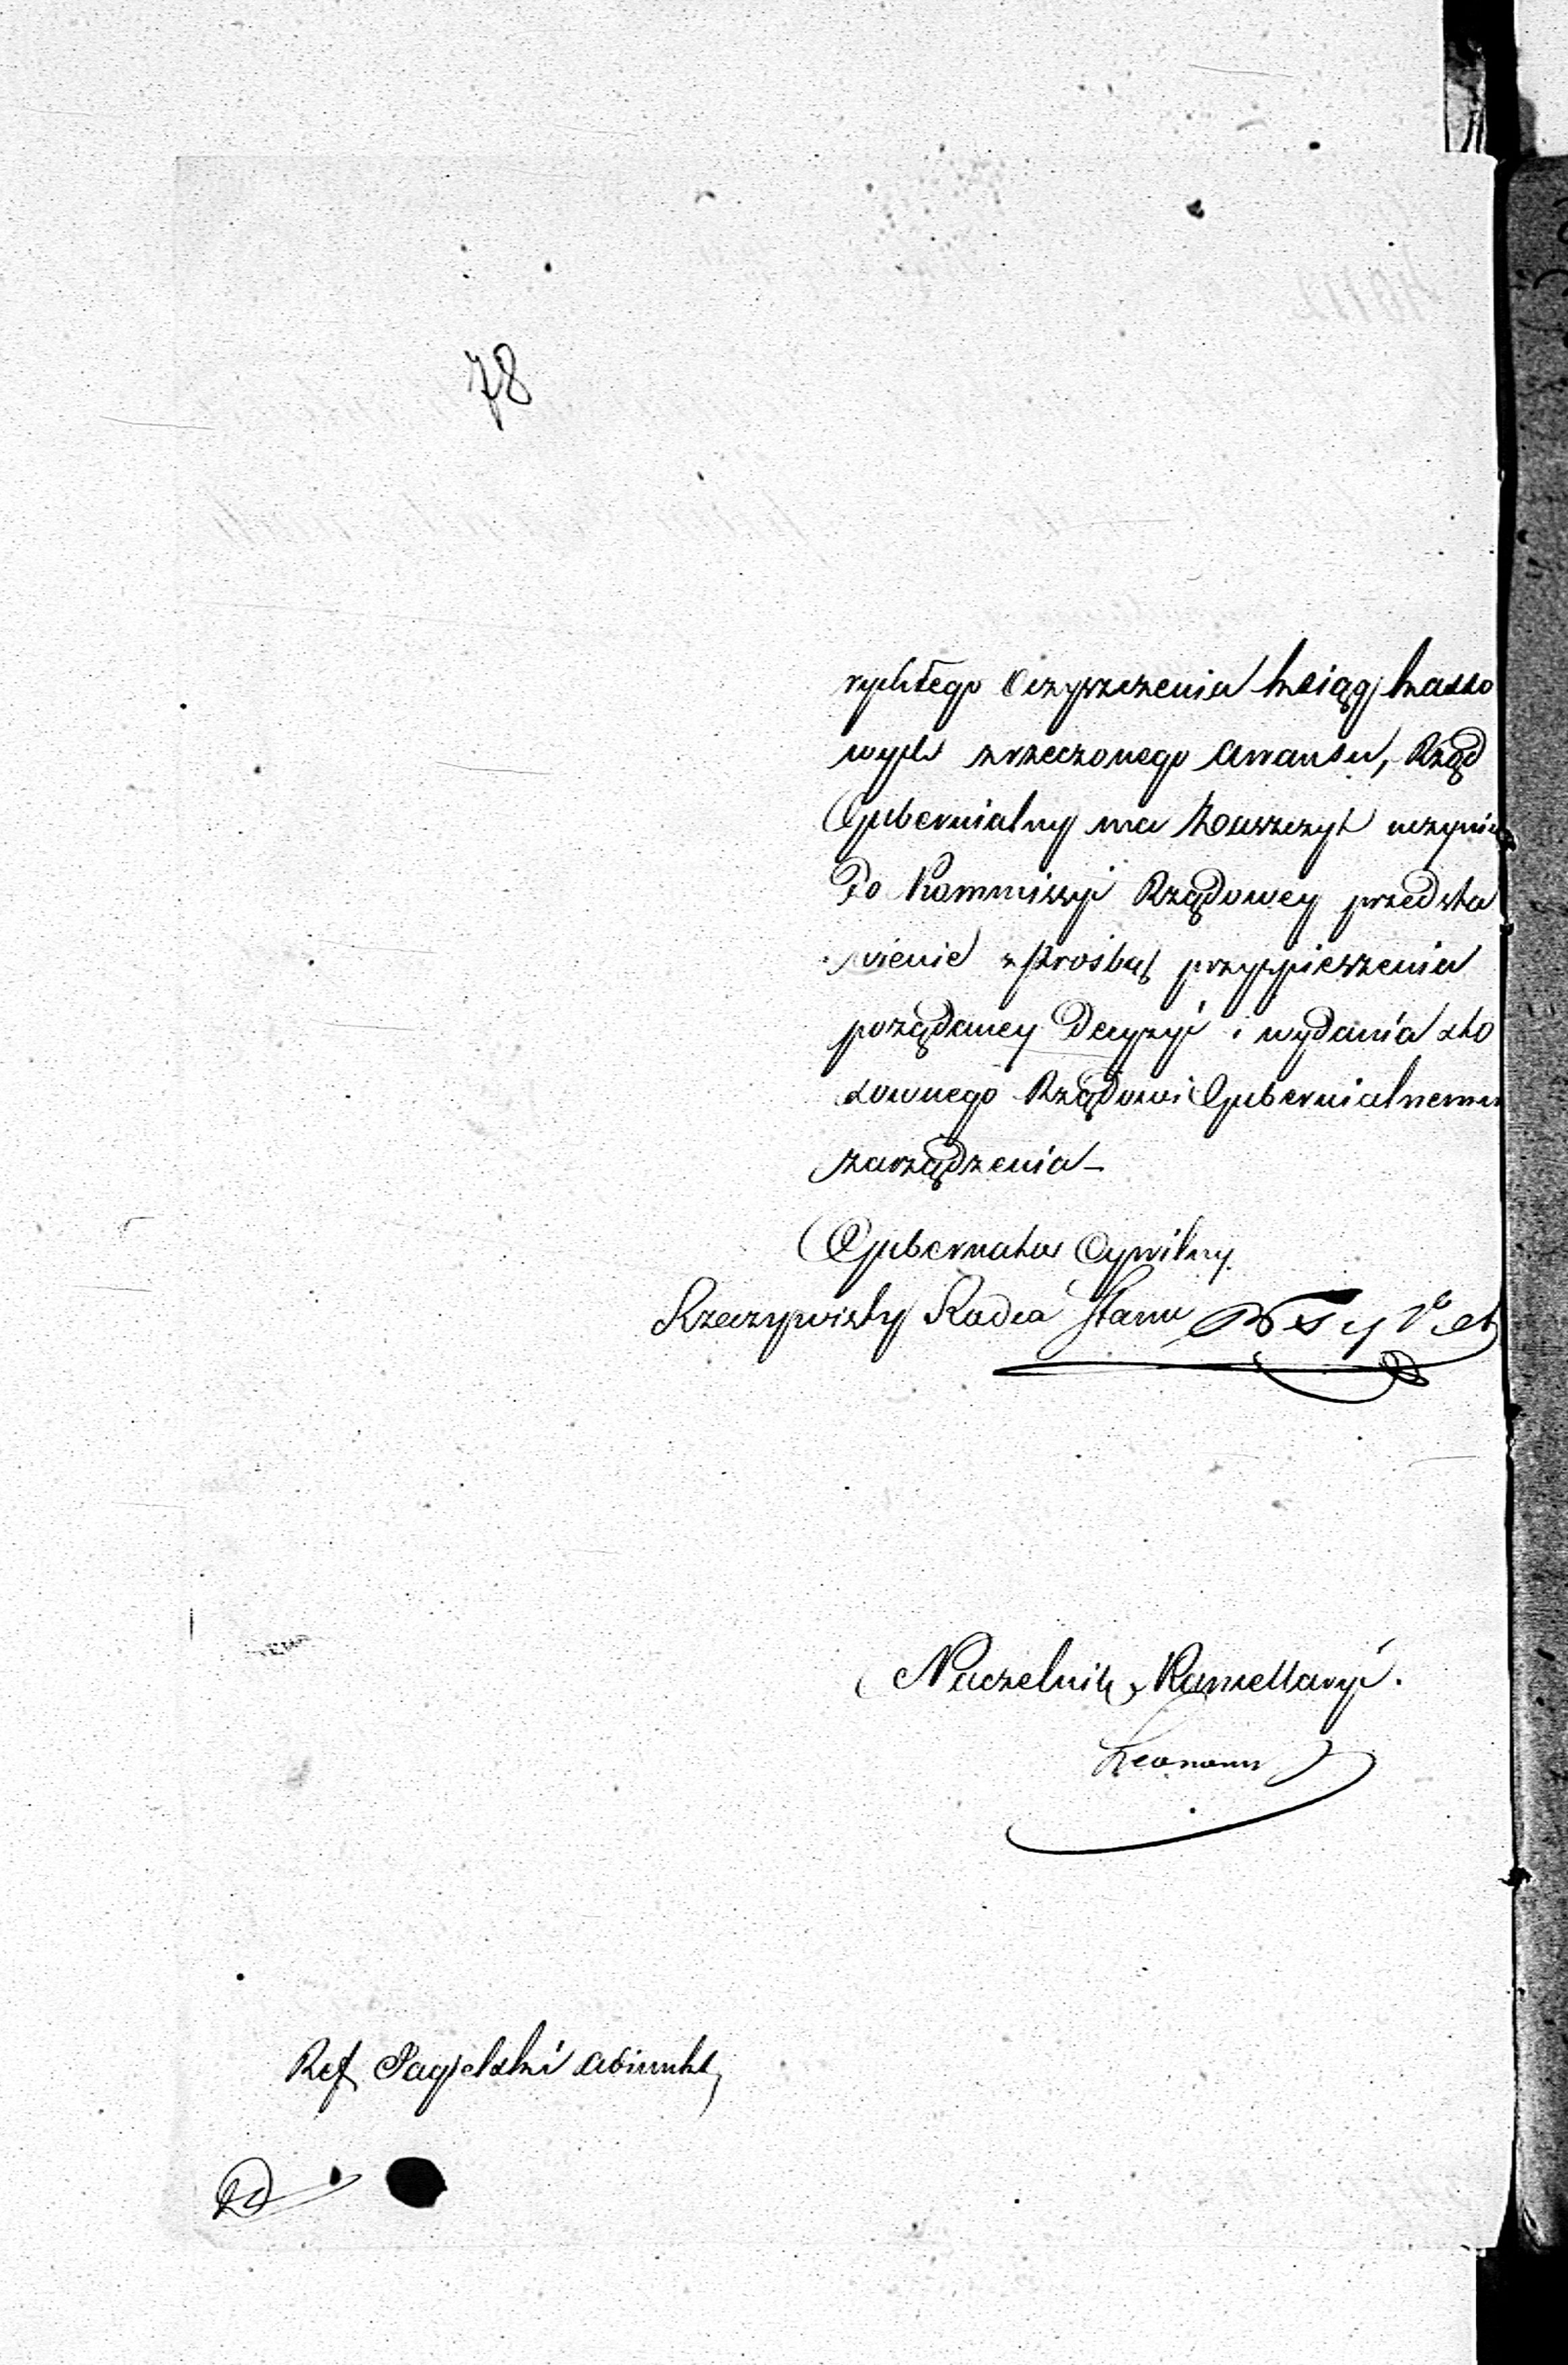 78
rychłego Oczyszczenia ksiąg kasso
wych zrzeczonego Awansu, Rząd
Gubernialny ma Zaszczyt uczynić
Do Kommissyi Rządowey przedsta
wienie z Prośbą przyspieszenia
pożądaney Decyzyi i wydania sto
sownego Rządowi Gubernialnemu
zarządzenia_
Gubernator Cywilny
Rzeczywisty Radca Stanu
Naczelnik Kancellaryi.
Ref Jagielski Adiunkt